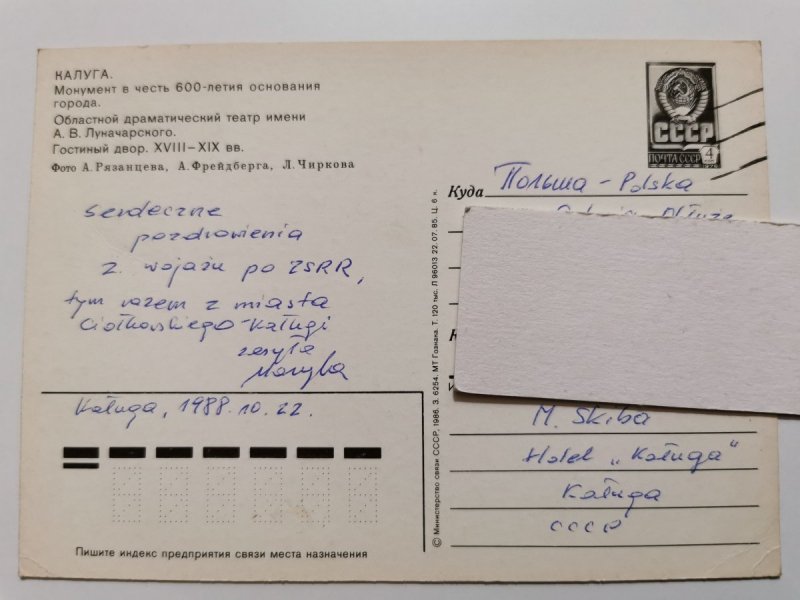 КАЛУГА.
Монумент в честь 600-летия основания
города.
Областной драматический театр имени
А. В. Луначарского.
Гостиный двор. XVIII–XIX вв.
Фото А. Рязанцева, А. Фрейдберга, Л. Чиркова
СССР
ПОЧТА СССР 4
Куда Польша - Polska
serdeczne
pozdrowienia
z wojażu po ZSRR,
tym razem z miasta
Ciołkowskiego - Kaługi
zesyła
Kaługa, 1988.10.22.
M. Skiba
Hotel „Kaługa"
Kaługa
СССР
Пишите индекс предприятия связи места назначения
© Министерство связи СССР, 1986. З. 6254. МТ Гознака. Т. 120 тыс. Л 96013 22.07.85. Ц. 6 к.